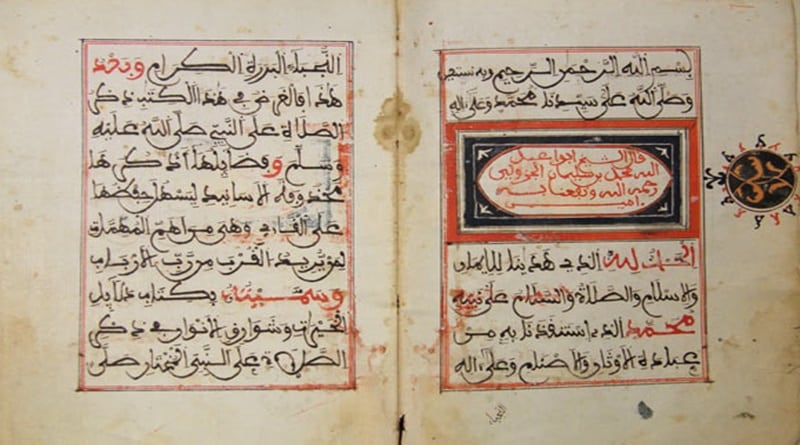 بسم الله الرحمن الرحيم وبه نستعين
وصلى الله على سيدنا محمد وعلى اله
قال الشيخ ابو عبد
الله محمد بن سليمان الجزولي
رحمه الله ونفعنا به
امين
الحمد لله الذي هدينا للايمان
والاسلام والصلاة والسلام على نبيه
محمد الذي استنقذنا به من
عبادة الاوثان والاصنام وعلى اله
النجباء البررة الكرام وبعد
هذا فالغرض في هذا الكتب ذكر
الصلاة على النبي صلى الله عليه
وسلم وفضايلها نذكرها
محذوفة الاسانيد ليسهل حفظها
على القارئ وهي من اهم المهمات
لمن يريد القرب من رب الارباب
وسميته بكتاب دلايل
الخيرات وشوارق الانوار في ذكر
الصلاة على النبي المختار صلى